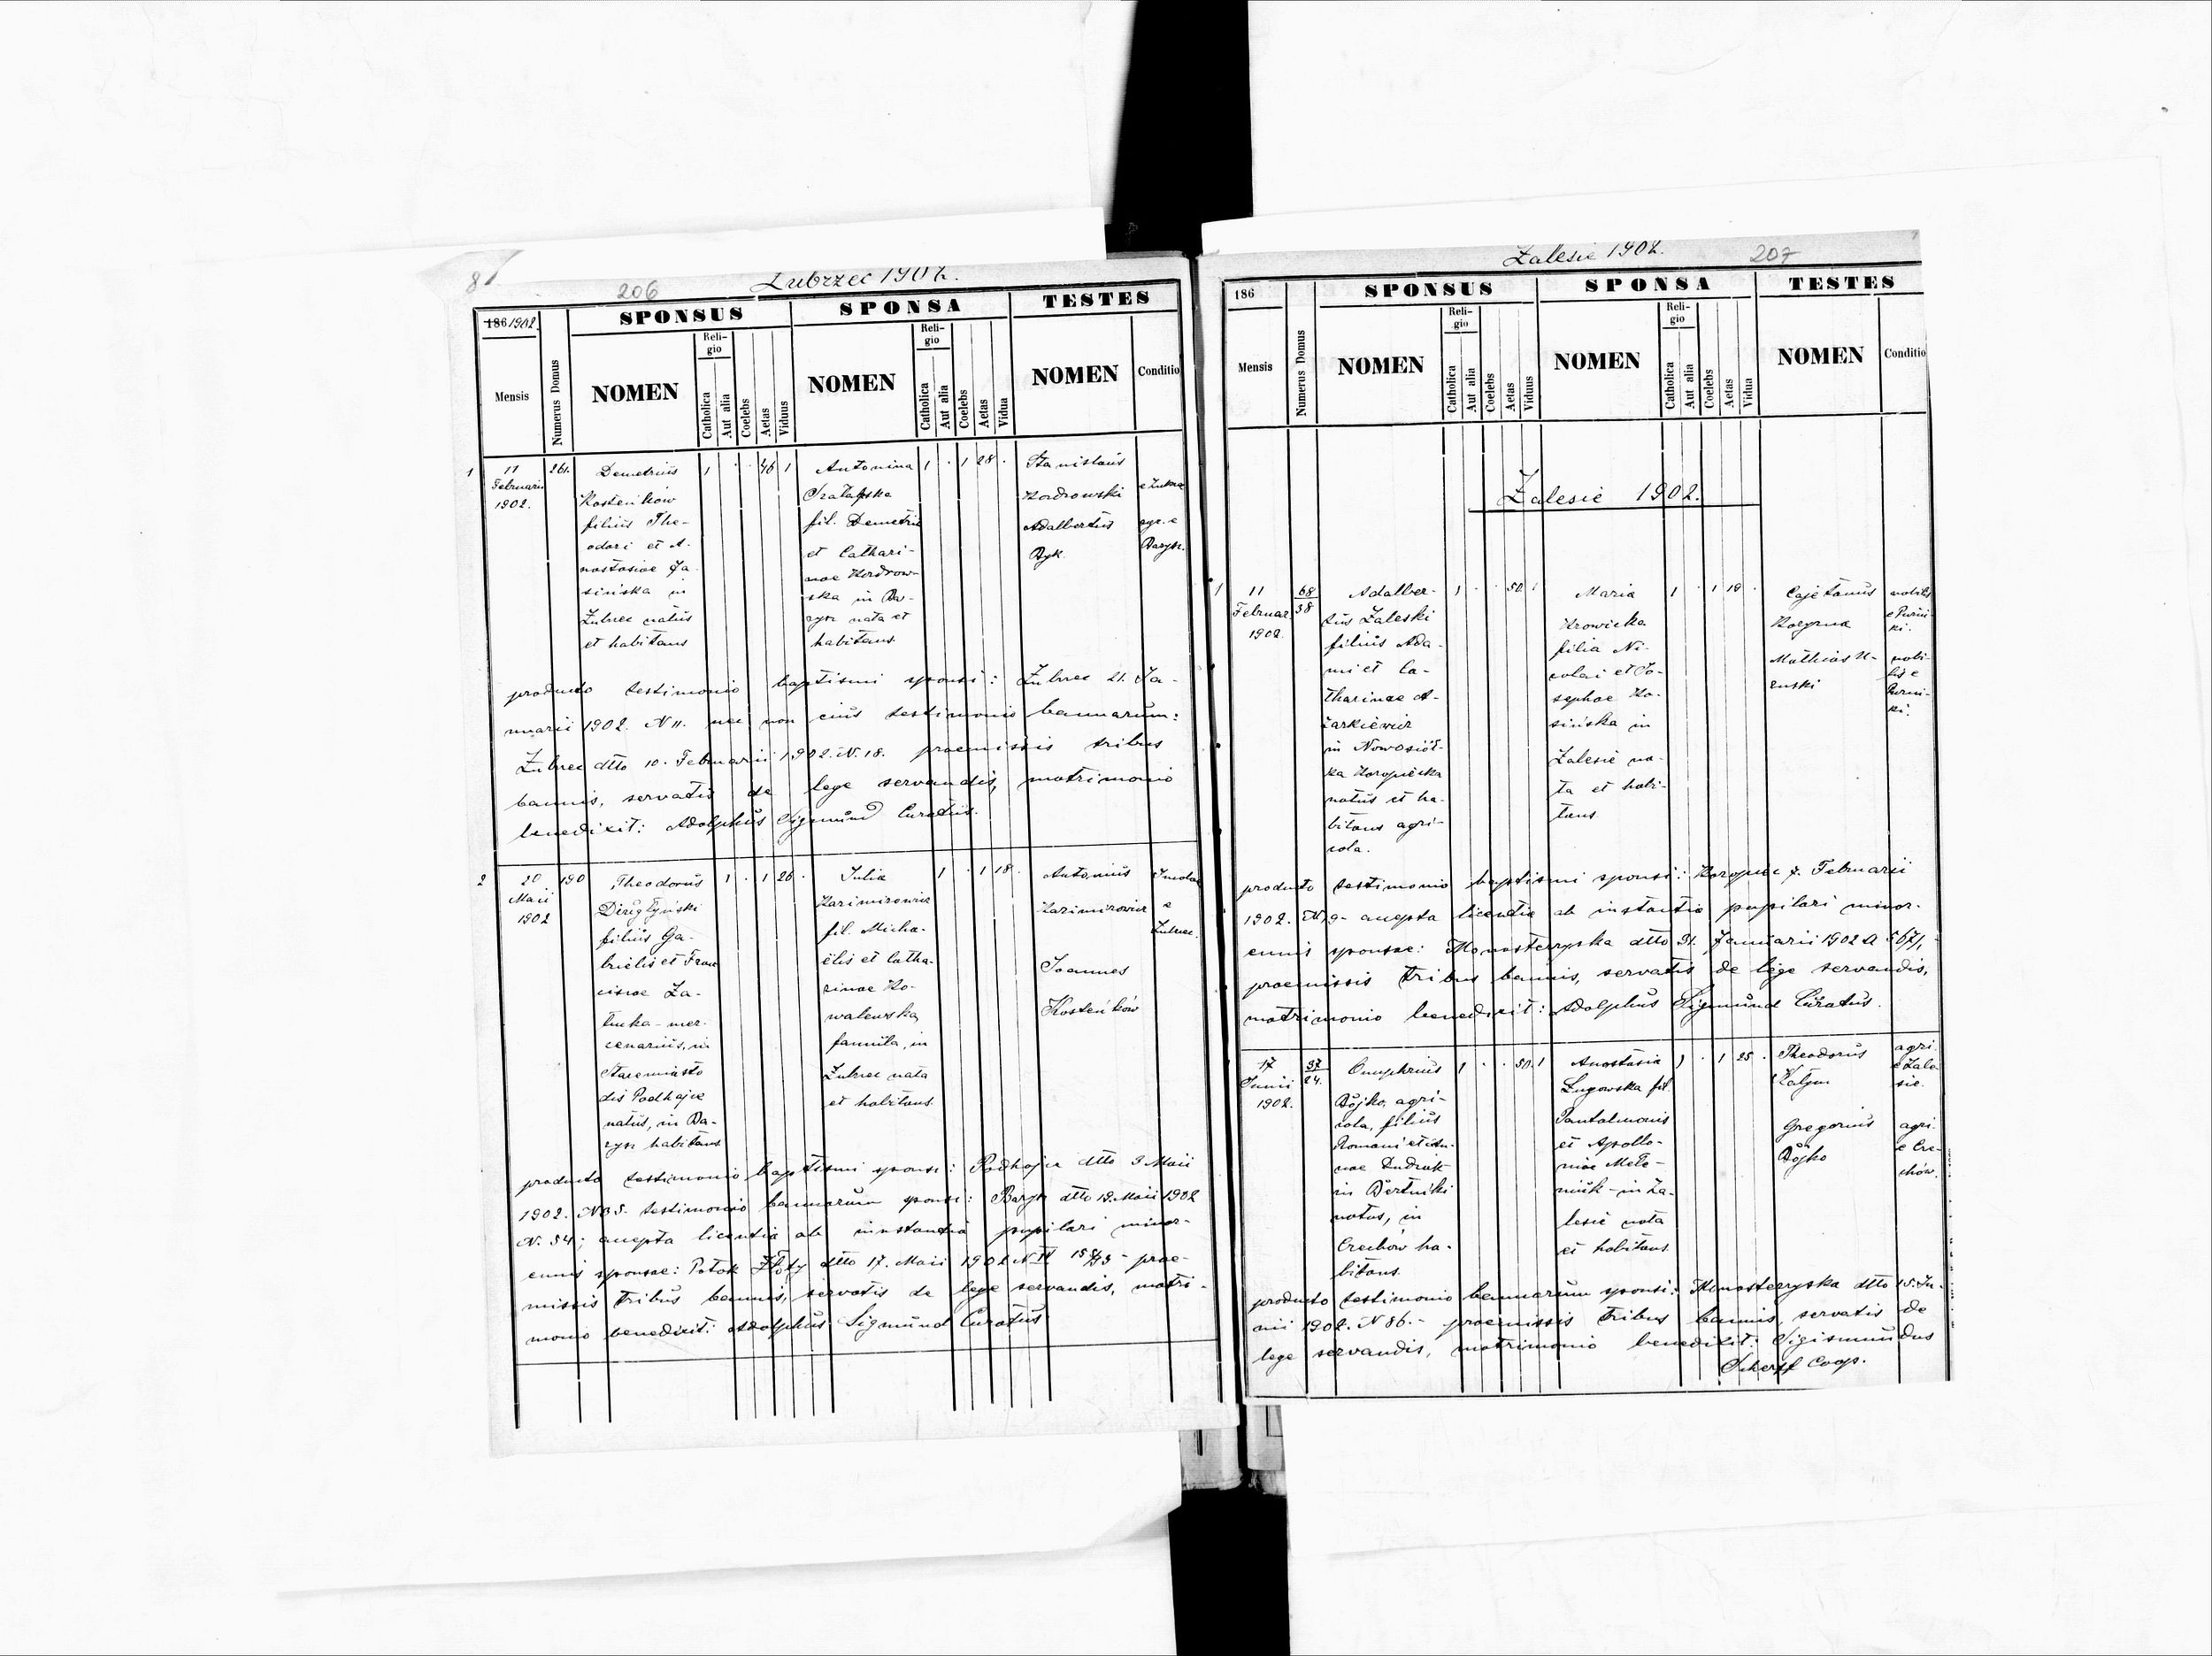 206
Zubrzec 1902.
186 1902
SPONSUS
SPONSA
TESTES
Mensis
Numerus Domus
NOMEN
Reli-
gio
Catholica
Aut alia
Coelebs
Aetas
Viduus
NOMEN
Reli-
gio
Catholica
Aut alia
Coelebs
Aetas
Vidua
NOMEN
Conditio
1
11
Februarii
1902.
261.
Demetrius
Kosteńków
filius The-
odori et A-
nastasiae Ja-
sińska in
Zubrzec natus
et habitans
1
46
1
Antonina
fil. Demetrii
et Cathari-
nae Kordrow-
ska in Ba-
rysz nata et
habitans.
1
1 28
Stanislaus
Kordrowski
Adalbertus
Byk.
e Zubrze
agr. e
Barysz.
producto testimonio baptismi sponsi: Zubrzec 21. Ja-
nuarii 1902. N 11. nec non eius testimonio bannorum:
Zubrzec dtto 10. Februarii 1902. N. 18. praemissis tribus
bannis, servatis de lege servandis, matrimonio
benedixit: Adolphus Sigmund Curatus.
2
20
Maii
1902
190
Theodorus
filius Ga-
brielis et Fran
ciscae Za-
mer-
cenarius, in
Staremiasto
dis Podhajce
natus, in Ba-
rysz habitans
1
1 26
Julia
Kazimirowicz
fil. Micha-
ëlis et Catha-
rinae Ko-
walewska
famula, in
Zubrzec nata
et habitans.
1
1 18
Antonius
Kazimirowicz
Joannes
Kosteńków
Incolae
e
Zubrzec.
producto testimonio baptismi sponsi: Podhajce dtto 3 Maii
1902. testimonio bannorum sponsi: Barysz dtto 19. Maii 1902
N. 54; accepta licentia ab instantia pupilari minor-
ennis sponsae: Potok Złoty dtto 17. Maii 1902 prae-
missis tribus bannis, servatis de lege servandis, matri-
monio benedixit: Adolphus Sigmund Curatus
Zalesie 1902.
207
186
SPONSUS
SPONSA
TESTES
Mensis
Numerus Domus
NOMEN
Reli-
gio
Catholica
Aut alia
Coelebs
Aetas
Viduus
NOMEN
Reli-
gio
Catholica
Aut alia
Coelebs
Aetas
Vidua
NOMEN
Conditio
Zalesie 1902.
1
11
Februar.
1902.
68
38
Adalber-
tus Zaleski
filius Ada-
mi et Ca-
tharinae A-
żarkiewicz
in Nowosioł-
ka Koropiecka
natus et ha-
bitans agri-
cola.
1
50
1
Maria
Krowicka
filia Ni-
colai et Jo-
sephae Ko-
sińska in
Zalesie na-
ta et habi-
tans.
1
1 19
Cajetanus
Mathias
nobilis
nobi-
lis e
producto testimonio baptismi sponsi: Koropiec 7. Februarii
1902. N 9- accepta licentia ab instantia pupilari minor-
ennis sponsae: Monasterzyska dtto 31. Januarii 1902
praemissis tribus bannis, servatis de lege servandis,
matrimonio benedixit: Adolphus Sigmund Curatus.
17
Junii
1902.
37
24.
Onuphrius
Bojko, agri-
cola, filius
Romani et An-
nae Dudiak
in Bertniki
natus, in
Czechów ha-
bitans.
1
50
1
Anastasia
Ługowska fil.
Pantalmonis
et Apollo-
niae Mele-
niuk - in Za-
lesie nata
et habitans.
1
1 25
Theodorus
Gregorius
Bojko
agri.
e Zale-
sie.
agri.
e Cze-
chów.
producto testimonio bannorum sponsi: Monasterzyska dtto 15. Ju-
nii 1902. N 86. - praemissis tribus bannis, servatis de
lege servandis, matrimonio benedixit: Sigismundus
Scherff Coop.